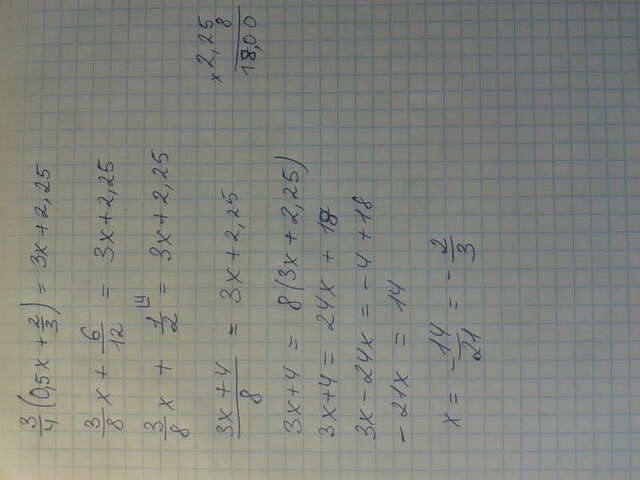 3/4(0,5x + 2/3) = 3x + 2,25
3/8 x + 6/12 = 3x + 2,25
3/8 x + 1/2 ⁽⁴ = 3x + 2,25
(3x + 4)/8 = 3x + 2,25
3x + 4 = 8(3x + 2,25)
3x + 4 = 24x + 18
3x - 24x = -4 + 18
-21x = 14
x = -14/21 = -2/3
× 2,25
8
18,00